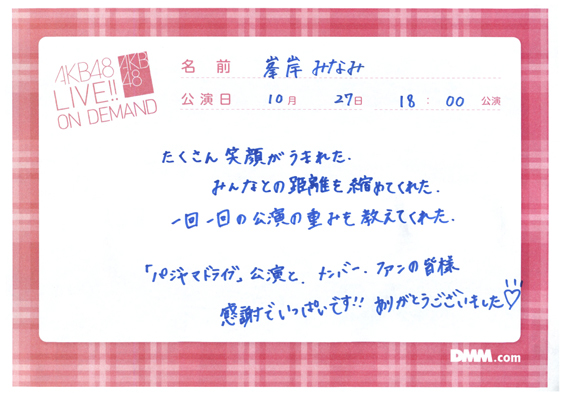 AKB48
LIVE!!
ON DEMAND
AKB
48
名 前 峯岸 みなみ
公演日 10月 27日 18:00 公演
たくさん 笑顔がうまれた.
みんなとの距離を縮めてくれた.
一回一回の公演の重みを教えてくれた.
「パジャマドライブ」公演と、メンバー、ファンの皆様
感謝でいっぱいです!! ありがとうございました♡
DMM.com